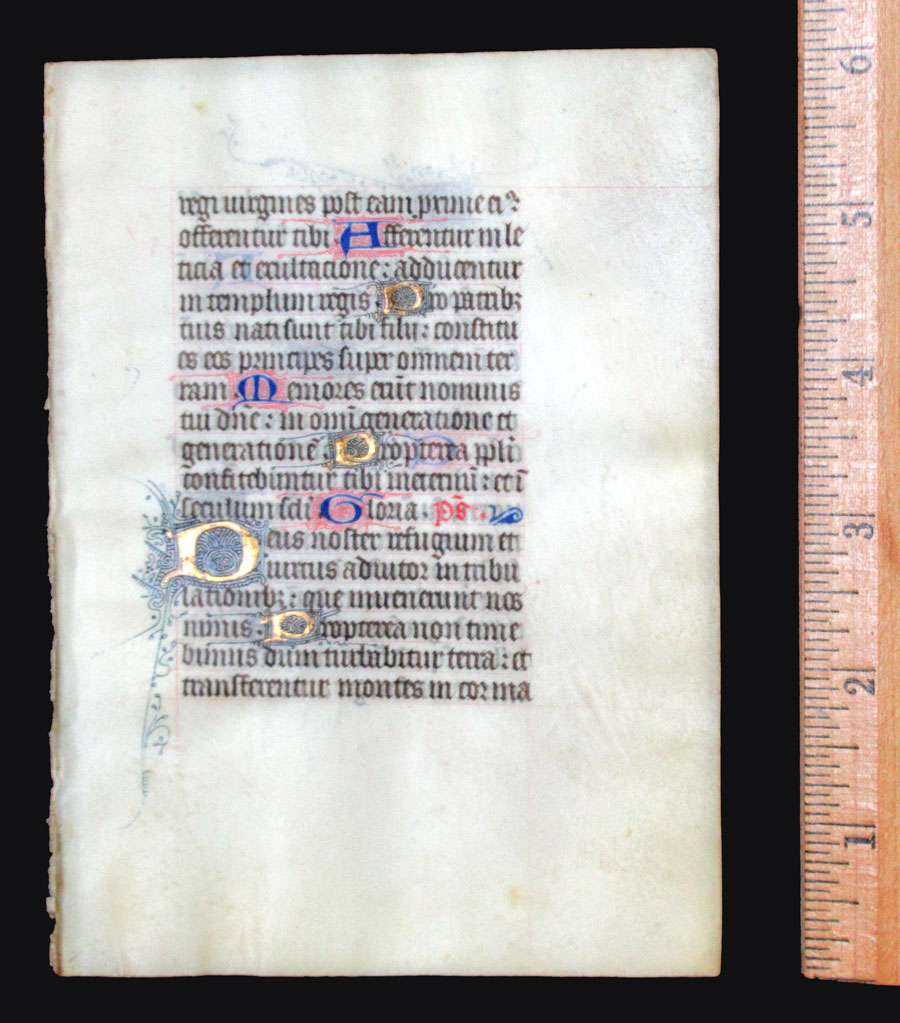 regi uirgines post eam prime ei9:
offerentur tibi Afferentur in le
ticia et exultacione: adducentur
in templum regis Pro patribz
tuis nati sunt tibi filij: constitu
es eos principes super omnem ter
ram Memores erūt nominis
tui dn̄e: in omī generatione et
generationē Propterea ppl̄i
confitebuntur tibi in eternū: et ī
seculum scl̄i Gloria ps̄
Deus noster refugium et
uirtus adiutor in tribu
lationibz: que inuenerunt nos
nimis Propterea non time
bimus dum turbabitur terra: et
transferentur montes in cor ma
6
5
4
3
2
1